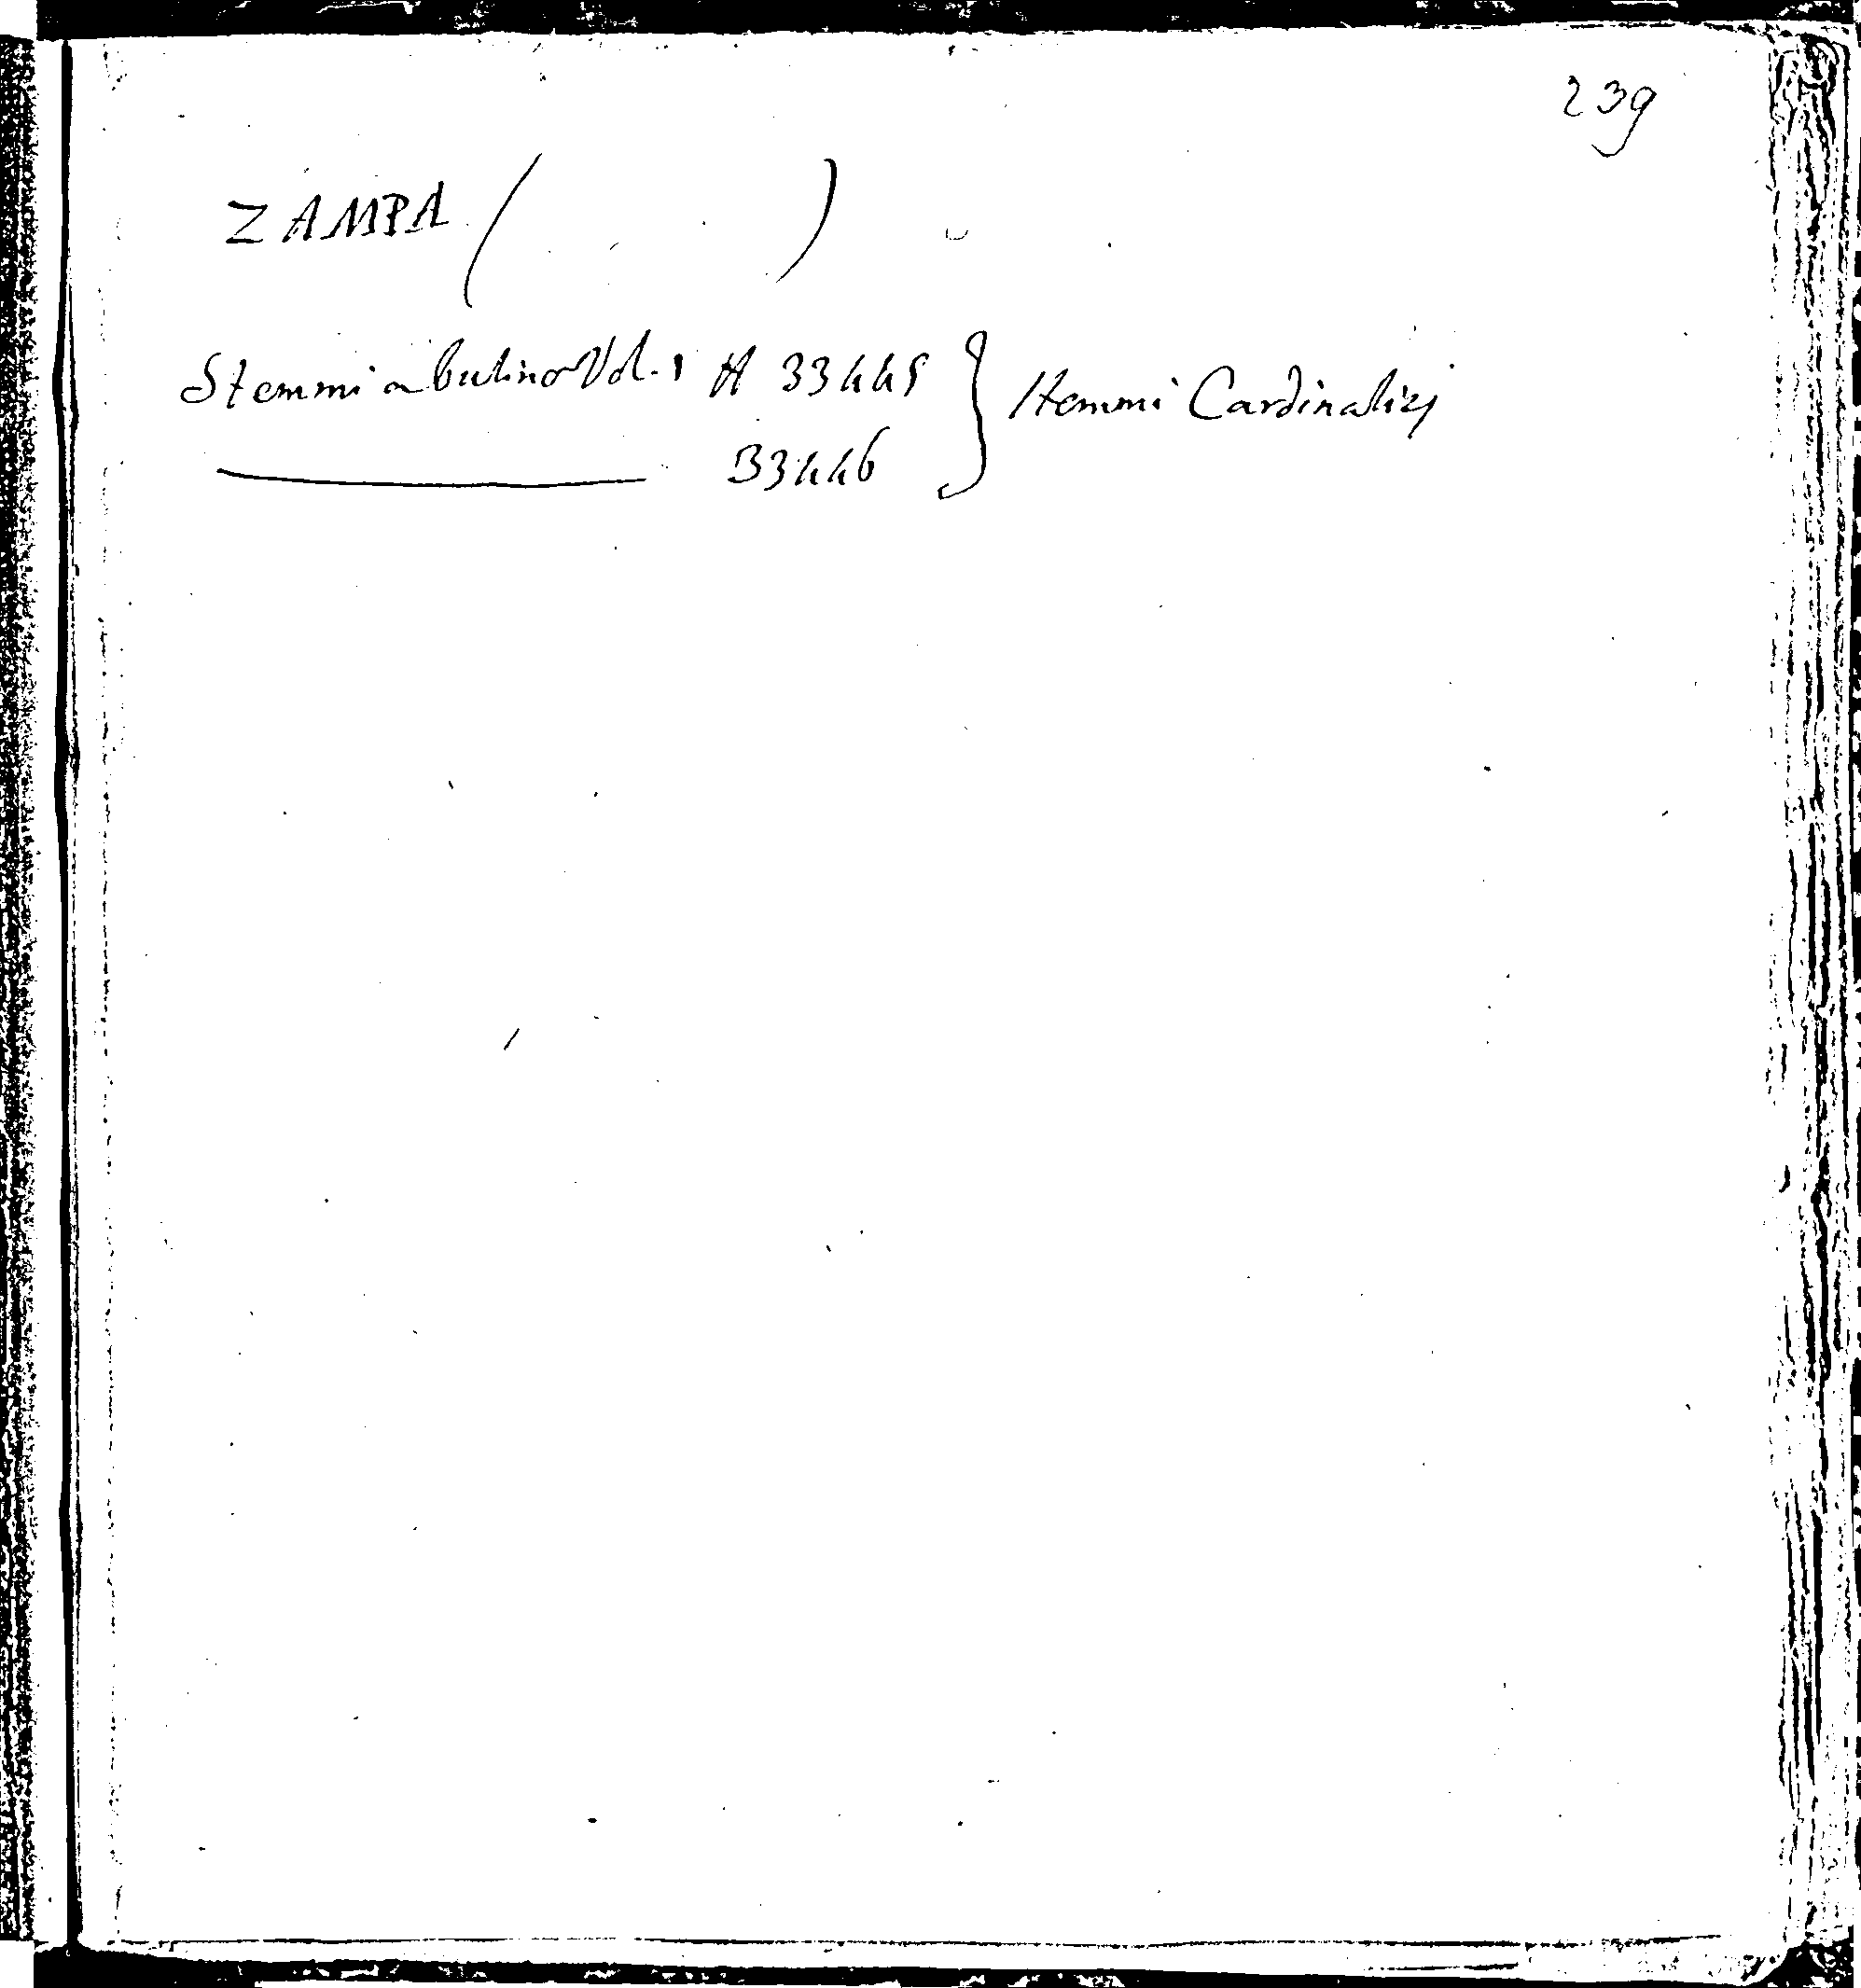 239
ZAMPA ( )
Stemmi a bulino Vol. 1 H 33445 } Stemmi Cardinalizj
33446